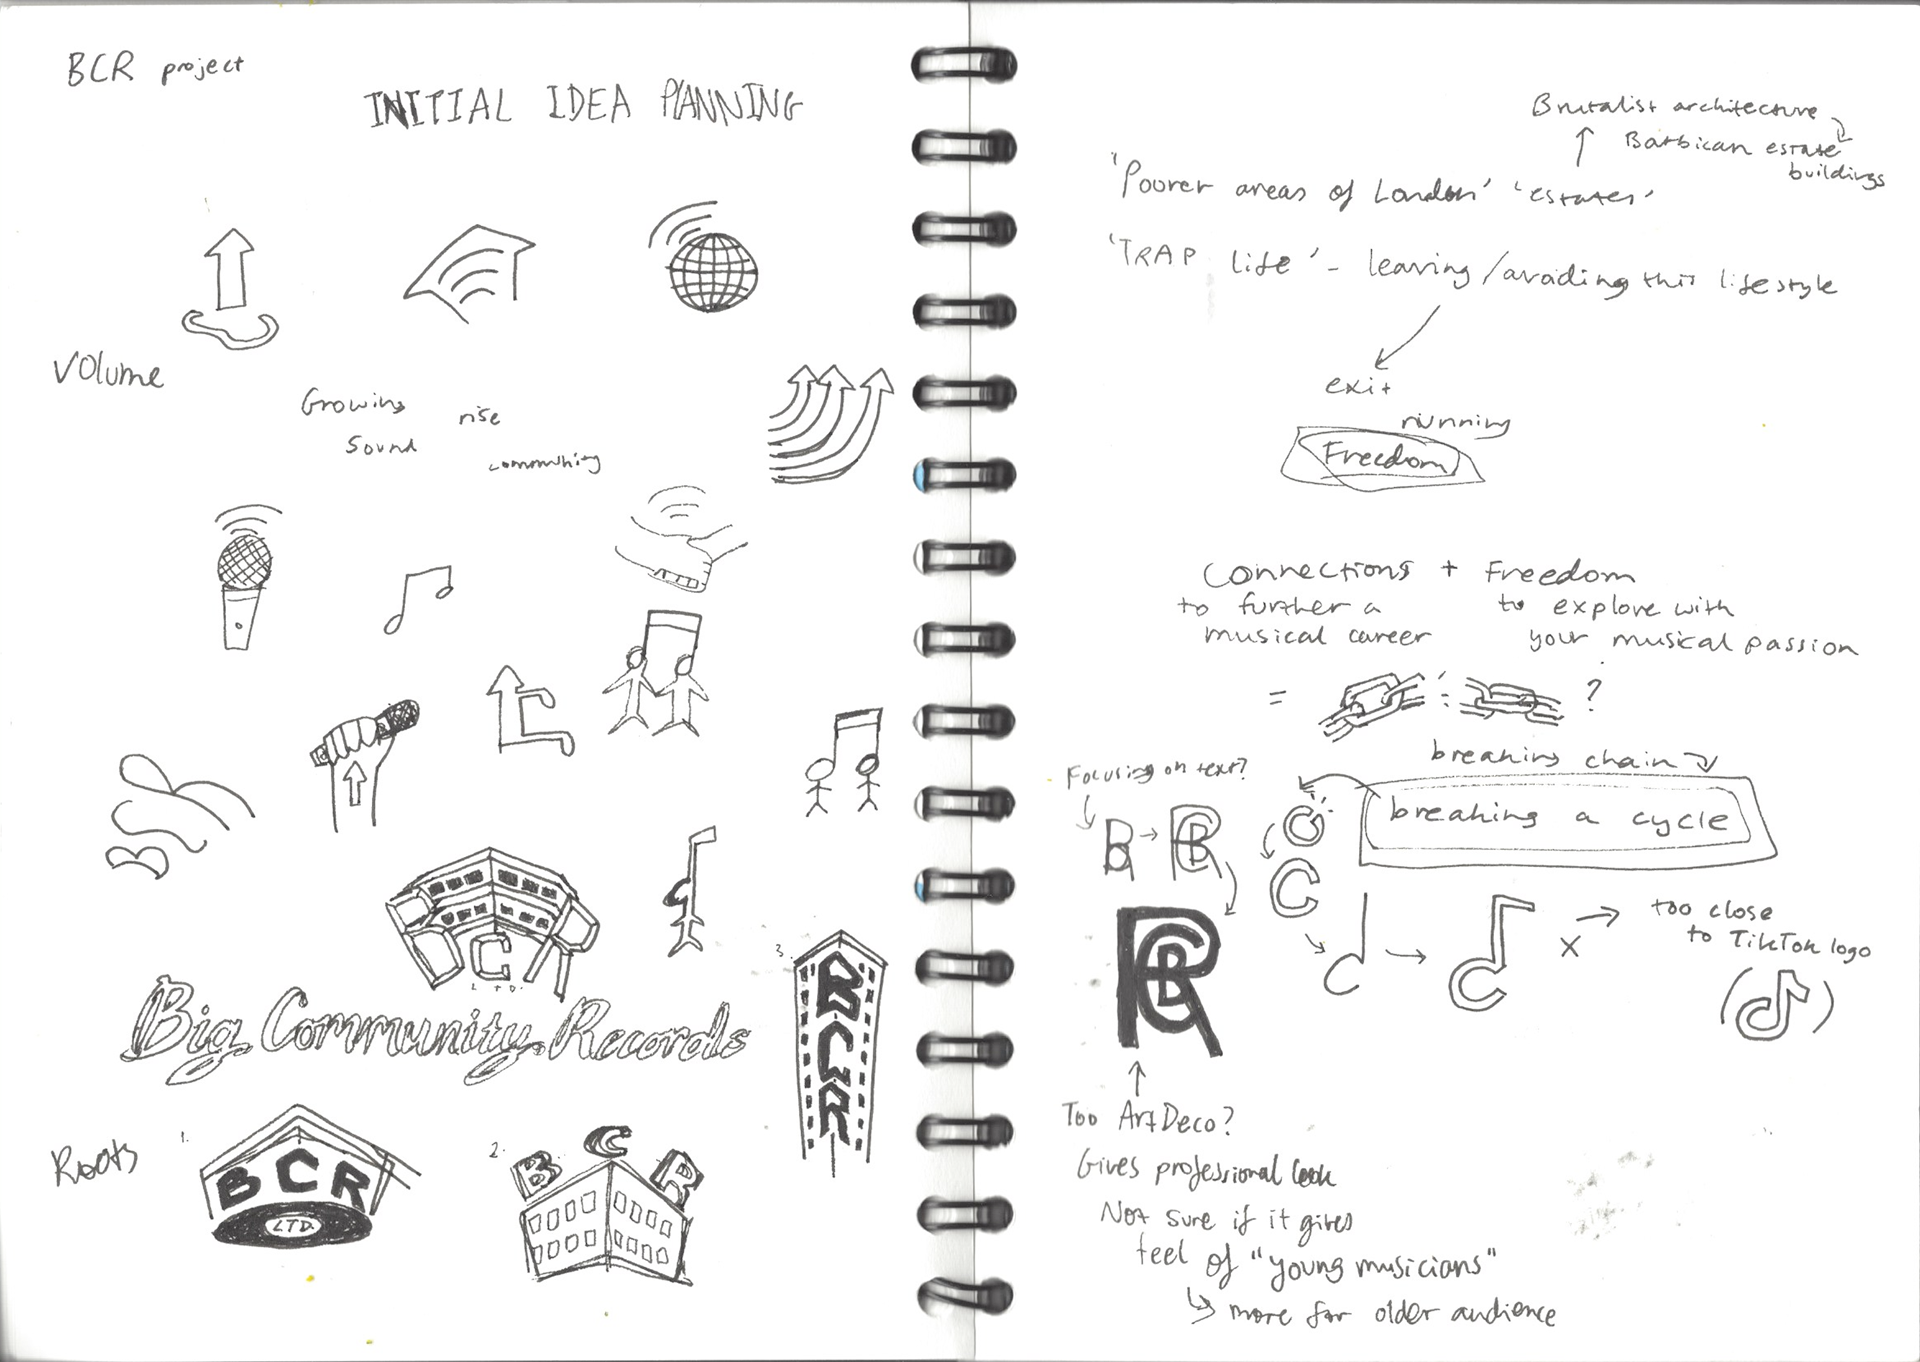 BCR project
INITIAL IDEA PLANNING
Volume
Growing
rise
Sound
community
C
LTD.
Big Community Records
3.
BCR
Roots
1.
BCR
LTD.
2.
B C R
Brutalist architecture
Barbican estate
buildings
'Poorer areas of London' 'estates'
'TRAP life' - leaving/avoiding this lifestyle
exit
running
Freedom
Connections + Freedom
to further a
musical career
to explore with
your musical passion
= ?
breaking chain
breaking a cycle
Focusing on text?
B
R
BCR
C
C
x
too close
to TikTok logo
Too Art Deco?
Gives professional look
Not sure if it gives
feel of "young musicians"
more for older audience